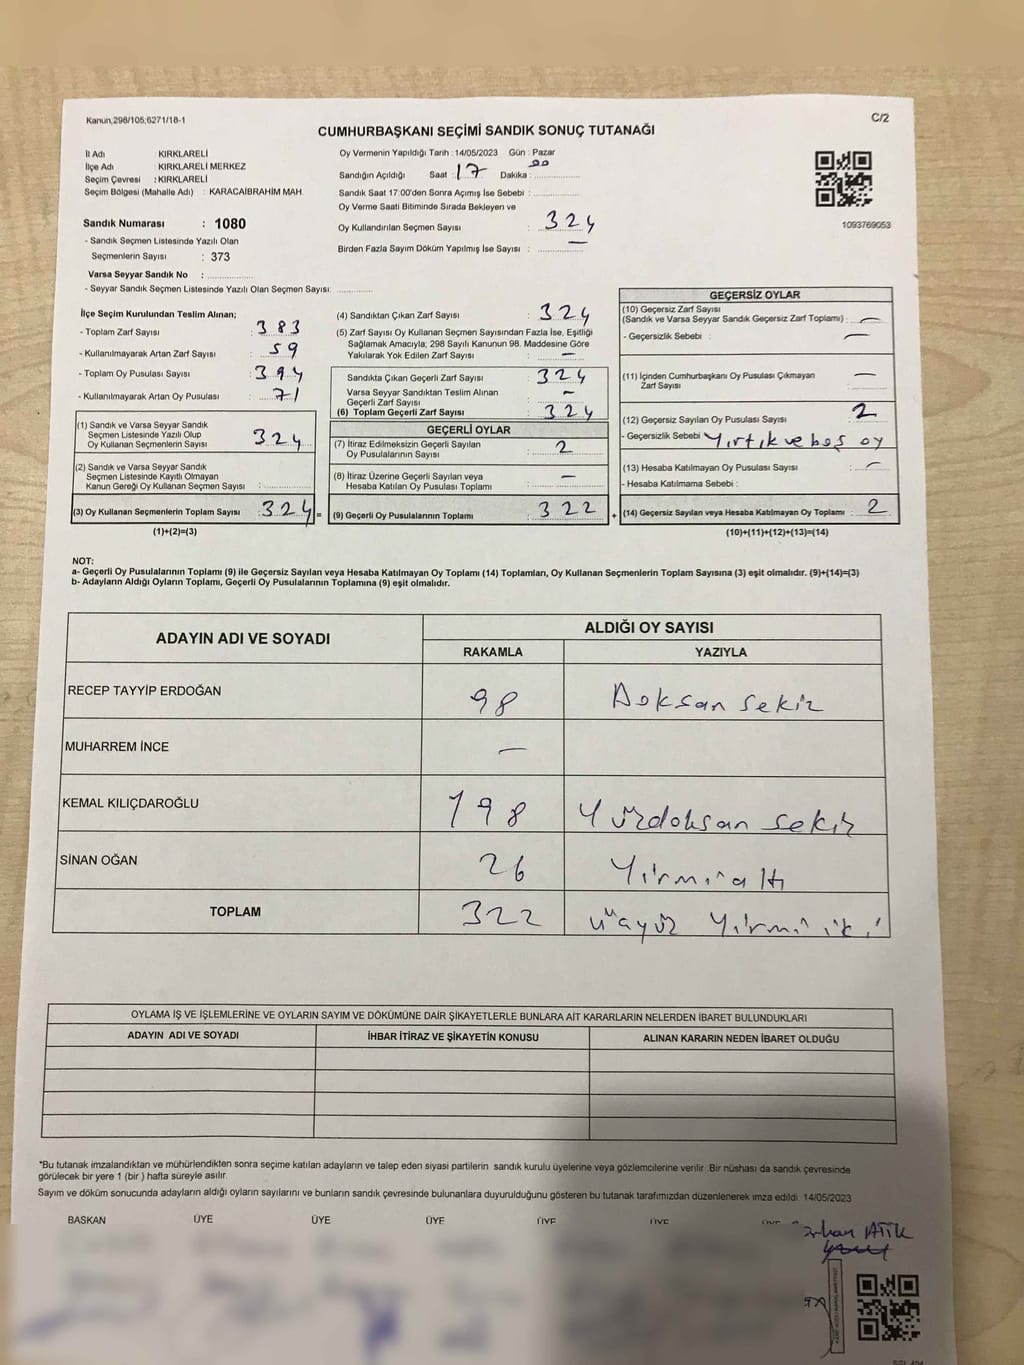 Kanun,298/105;6271/18-1
C/2
CUMHURBAŞKANI SEÇİMİ SANDIK SONUÇ TUTANAĞI
İl Adı : KIRKLARELİ
İlçe Adı : KIRKLARELİ MERKEZ
Seçim Çevresi : KIRKLARELİ
Seçim Bölgesi (Mahalle Adı) : KARACAİBRAHİM MAH.
Sandık Numarası : 1080
- Sandık Seçmen Listesinde Yazılı Olan
Seçmenlerin Sayısı : 373
Varsa Seyyar Sandık No :
- Seyyar Sandık Seçmen Listesinde Yazılı Olan Seçmen Sayısı:
Oy Vermenin Yapıldığı Tarih : 14/05/2023 Gün : Pazar
Sandığın Açıldığı Saat : 17 Dakika : 00
Sandık Saat 17:00'den Sonra Açımış İse Sebebi :
Oy Verme Saati Bitiminde Sırada Bekleyen ve
Oy Kullandırılan Seçmen Sayısı : 324
Birden Fazla Sayım Döküm Yapılmış İse Sayısı : —
1093769053
İlçe Seçim Kurulundan Teslim Alınan;
- Toplam Zarf Sayısı : 383
- Kullanılmayarak Artan Zarf Sayısı : 59
- Toplam Oy Pusulası Sayısı : 394
- Kullanılmayarak Artan Oy Pusulası : 71
(1) Sandık ve Varsa Seyyar Sandık
Seçmen Listesinde Yazılı Olup
Oy Kullanan Seçmenlerin Sayısı : 324
(2) Sandık ve Varsa Seyyar Sandık
Seçmen Listesinde Kayıtlı Olmayan
Kanun Gereği Oy Kullanan Seçmen Sayısı :
(3) Oy Kullanan Seçmenlerin Toplam Sayısı : 324 =
(1)+(2)=(3)
(4) Sandıktan Çıkan Zarf Sayısı : 324
(5) Zarf Sayısı Oy Kullanan Seçmen Sayısından Fazla İse, Eşitliği
Sağlamak Amacıyla; 298 Sayılı Kanunun 98. Maddesine Göre
Yakılarak Yok Edilen Zarf Sayısı : —
Sandıkta Çıkan Geçerli Zarf Sayısı : 324
Varsa Seyyar Sandıktan Teslim Alınan
Geçerli Zarf Sayısı : —
(6) Toplam Geçerli Zarf Sayısı : 324
GEÇERLİ OYLAR
(7) İtiraz Edilmeksizin Geçerli Sayılan
Oy Pusulalarının Sayısı : 2
(8) İtiraz Üzerine Geçerli Sayılan veya
Hesaba Katılan Oy Pusulası Toplamı : —
(9) Geçerli Oy Pusulalarının Toplamı : 322 +
GEÇERSİZ OYLAR
(10) Geçersiz Zarf Sayısı
(Sandık ve Varsa Seyyar Sandık Geçersiz Zarf Toplamı) : —
- Geçersizlik Sebebi : —
(11) İçinden Cumhurbaşkanı Oy Pusulası Çıkmayan
Zarf Sayısı : —
(12) Geçersiz Sayılan Oy Pusulası Sayısı : 2
- Geçersizlik Sebebi : Yırtık ve boş oy
(13) Hesaba Katılmayan Oy Pusulası Sayısı : —
- Hesaba Katılmama Sebebi :
(14) Geçersiz Sayılan veya Hesaba Katılmayan Oy Toplamı : 2
(10)+(11)+(12)+(13)=(14)
NOT:
a- Geçerli Oy Pusulalarının Toplamı (9) ile Geçersiz Sayılan veya Hesaba Katılmayan Oy Toplamı (14) Toplamları, Oy Kullanan Seçmenlerin Toplam Sayısına (3) eşit olmalıdır. (9)+(14)=(3)
b- Adayların Aldığı Oyların Toplamı, Geçerli Oy Pusulalarının Toplamına (9) eşit olmalıdır.
ADAYIN ADI VE SOYADI
ALDIĞI OY SAYISI
RAKAMLA YAZIYLA
RECEP TAYYİP ERDOĞAN 98 Doksan sekiz
MUHARREM İNCE —
KEMAL KILIÇDAROĞLU 198 Yüzdoksan sekiz
SİNAN OĞAN 26 Yirmi altı
TOPLAM 322 üçyüz Yirmi iki
OYLAMA İŞ VE İŞLEMLERİNE VE OYLARIN SAYIM VE DÖKÜMÜNE DAİR ŞİKAYETLERLE BUNLARA AİT KARARLARIN NELERDEN İBARET BULUNDUKLARI
ADAYIN ADI VE SOYADI İHBAR İTİRAZ VE ŞİKAYETİN KONUSU ALINAN KARARIN NEDEN İBARET OLDUĞU
*Bu tutanak imzalandıktan ve mühürlendikten sonra seçime katılan adayların ve talep eden siyasi partilerin sandık kurulu üyelerine veya gözlemcilerine verilir. Bir nüshası da sandık çevresinde
görülecek bir yere 1 (bir ) hafta süreyle asılır.
Sayım ve döküm sonucunda adayların aldığı oyların sayılarını ve bunların sandık çevresinde bulunanlara duyurulduğunu gösteren bu tutanak tarafımızdan düzenlenerek imza edildi. 14/05/2023
BAŞKAN ÜYE ÜYE ÜYE ÜYE ÜYE ÜYE
ATİK